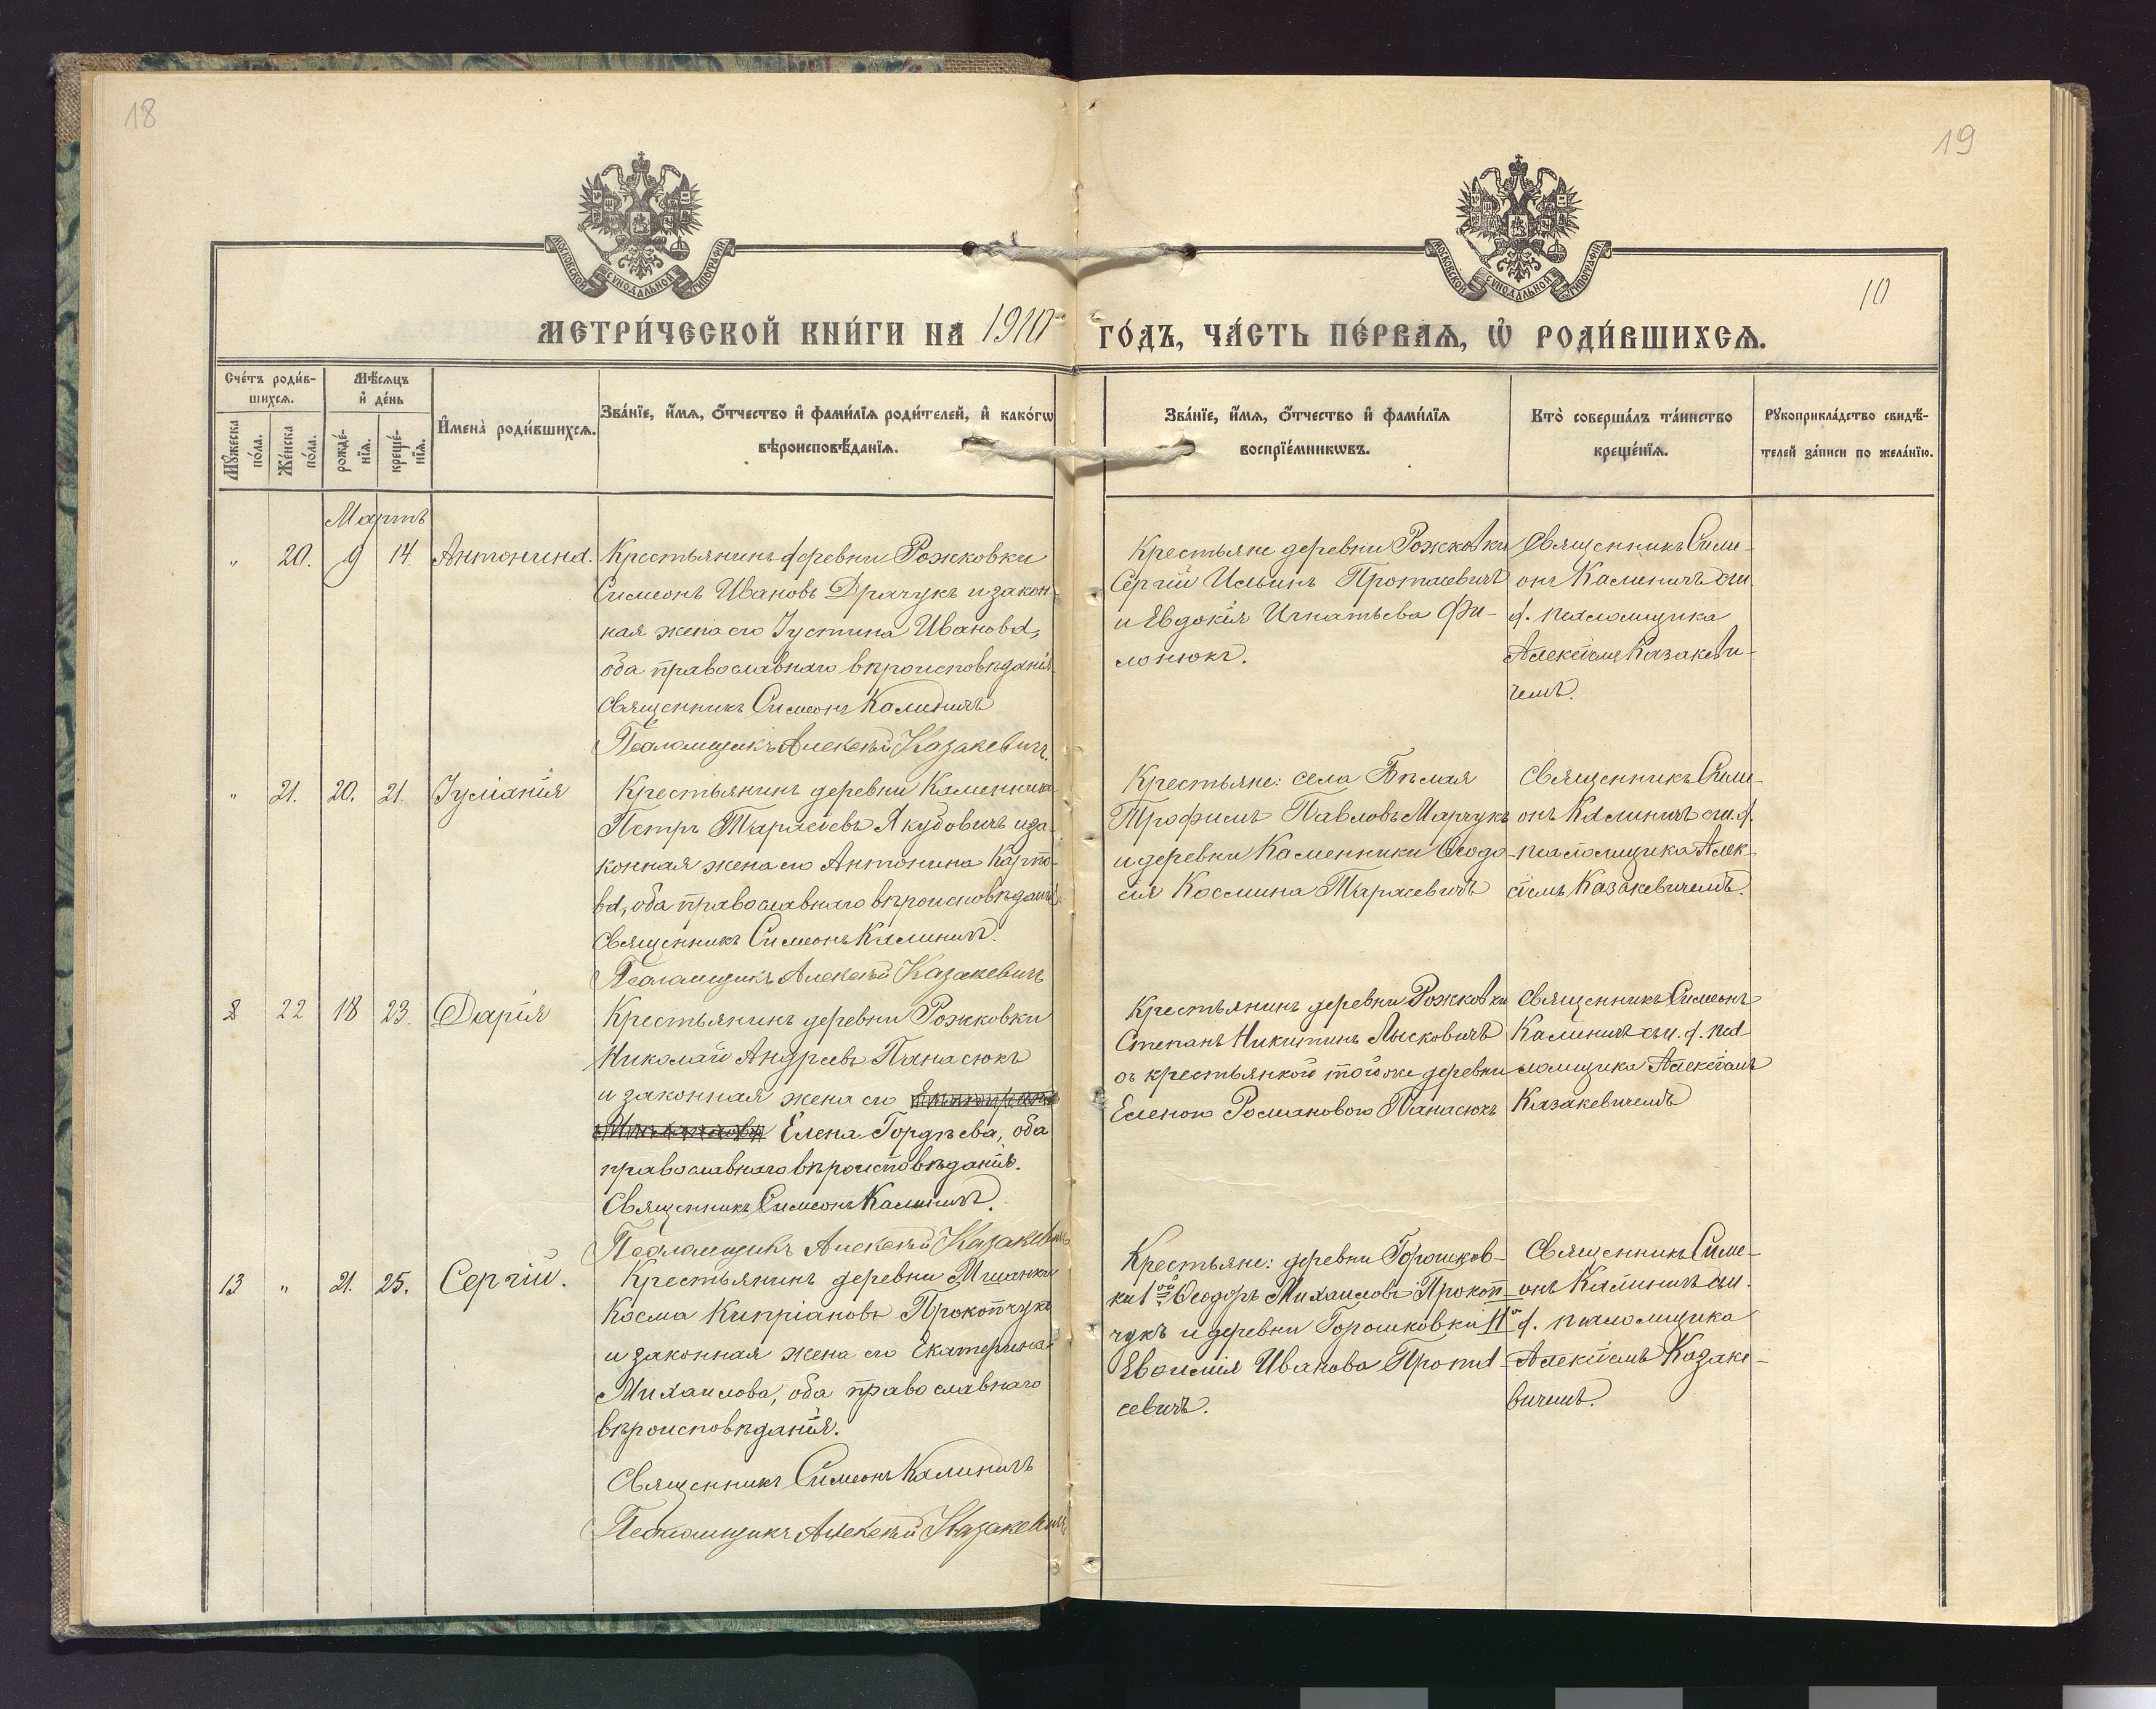 18
19
МОСКОВСКОЙ СѴНОДАЛЬНОЙ ТИПОГРАФІИ
МОСКОВСКОЙ СѴНОДАЛЬНОЙ ТИПОГРАФІИ
10
МЕТРИ́ЧЕСКОЙ КНИ́ГИ НА 1910 ГО́ДЪ, ЧА́СТЬ ПЕ́РВАѦ, Ѡ҆ РОДИ́ВШИХСѦ.
Сче́тъ роди́в-
шихсѧ.
Мꙋ́жеска по́ла.
Же́нска по́ла.
Мѣ́сѧцъ
и҆ де́нь
рожде́-
нїѧ.
креще́-
нїѧ.
И҆мена̀ роди́вшихсѧ.
Зва́нїе, и҆́мѧ, ѻ҆́тчество и҆ фами́лїѧ роди́телей, и҆ како́гѡ
вѣроисповѣ́данїѧ.
Зва́нїе, и҆́мѧ, ѻ҆́тчество и҆ фами́лїѧ
воспрїе́мникѡвъ.
Кто̀ соверша́лъ та́инство
креще́нїѧ.
Рꙋкоприкла́дство свидѣ́-
телей за́писи по жела́нїю.
Мартъ
„ 20. 9 14. Антонина.
Крестьянинъ деревни Рожковки
Симеонъ Ивановъ Драчукъ и закон-
ная жена его Іустина Иванова,
оба православнаго вѣроисповѣданія.
Священникъ Симеонъ Калиничъ
Псаломщикъ Алексѣй Казакевичъ.
Крестьяне деревни Рожковки
Сергій Ильинъ Протасевичъ
и Евдокія Игнатьева Фи-
лонюкъ.
Священникъ Симе-
онъ Калиничъ съ и.
д. псаломщика
Алексѣемъ Казакеви-
чемъ.
„ 21. 20. 21. Іуліанія
Крестьянинъ деревни Каменники
Петръ Тарасіевъ Якубовичъ и за-
конная жена его Антонина Карпо-
ва, оба православнаго вѣроисповѣданія.
Священникъ Симеонъ Калиничъ.
Псаломщикъ Алексѣй Казакевичъ
Крестьяне: села Бѣлая
Трофимъ Павловъ Марчукъ
и деревни Каменники Ѳеодо-
сія Космина Тарасевичъ
Священникъ Симе-
онъ Калиничъ съ и. д.
псаломщика Алек-
сѣемъ Казакевичемъ.
8 22 18 23. Дарія
Крестьянинъ деревни Рожковки
Николай Андреевъ Панасюкъ
и законная жена его
Елена Гордѣева, оба
православнаго вѣроисповѣданія.
Священникъ Симеонъ Калиничъ.
Псаломщикъ Алексѣй Казакевичъ
Крестьянинъ деревни Рожковки
Степанъ Никитинъ Лысковичъ
съ крестьянкой той же деревни
Еленою Романовою Панасюкъ
Священникъ Симеонъ
Калиничъ съ и. д. пса
ломщика Алексѣемъ
Казакевичемъ
13 „ 21. 25. Сергій.
Крестьянинъ деревни Мшанки
Косма Кипріановъ Прокопчукъ
и законная жена его Екатерина
Михаилова, оба православнаго
вѣроисповѣданія.
Священникъ Симеонъ Калиничъ
Псаломщикъ Алексѣй Казакевичъ
Крестьяне: деревни Горошков-
ки 1ой Ѳеодоръ Михаиловъ Прокоп-
чукъ и деревни Горошковки II
Евѳимія Иванова Прота-
севичъ.
Священникъ Симе-
онъ Калиничъ съ и.
д. псаломщика
Алексѣемъ Казаке-
вичемъ.